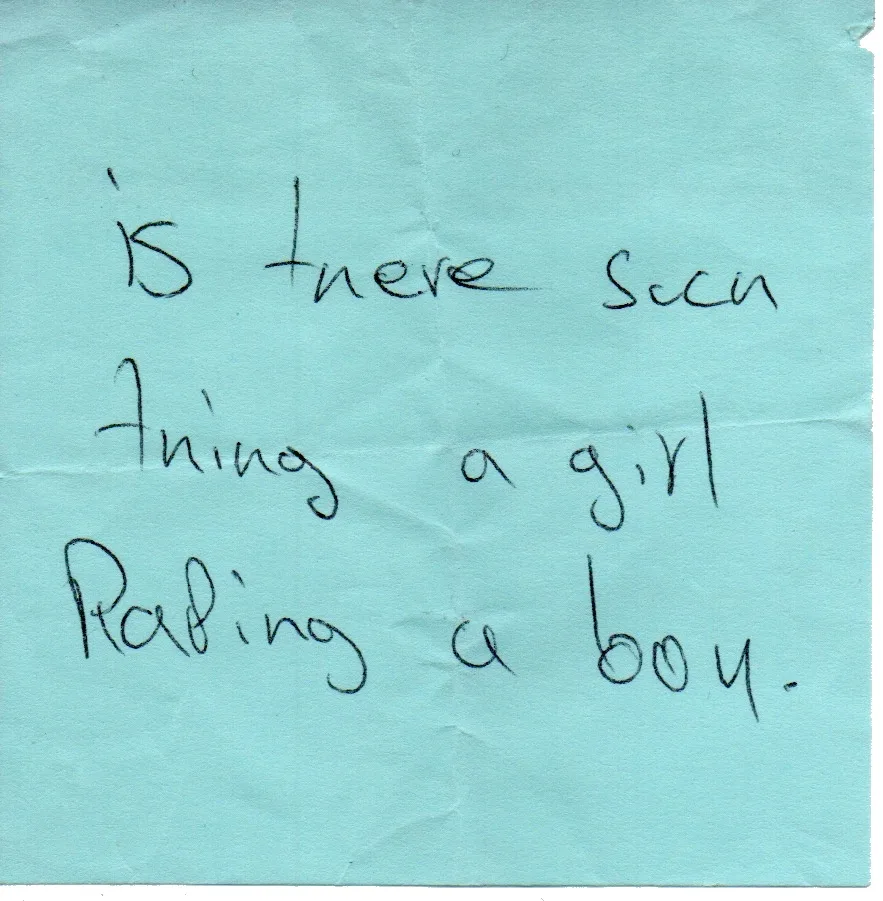 is there such
thing a girl
Raping a boy.